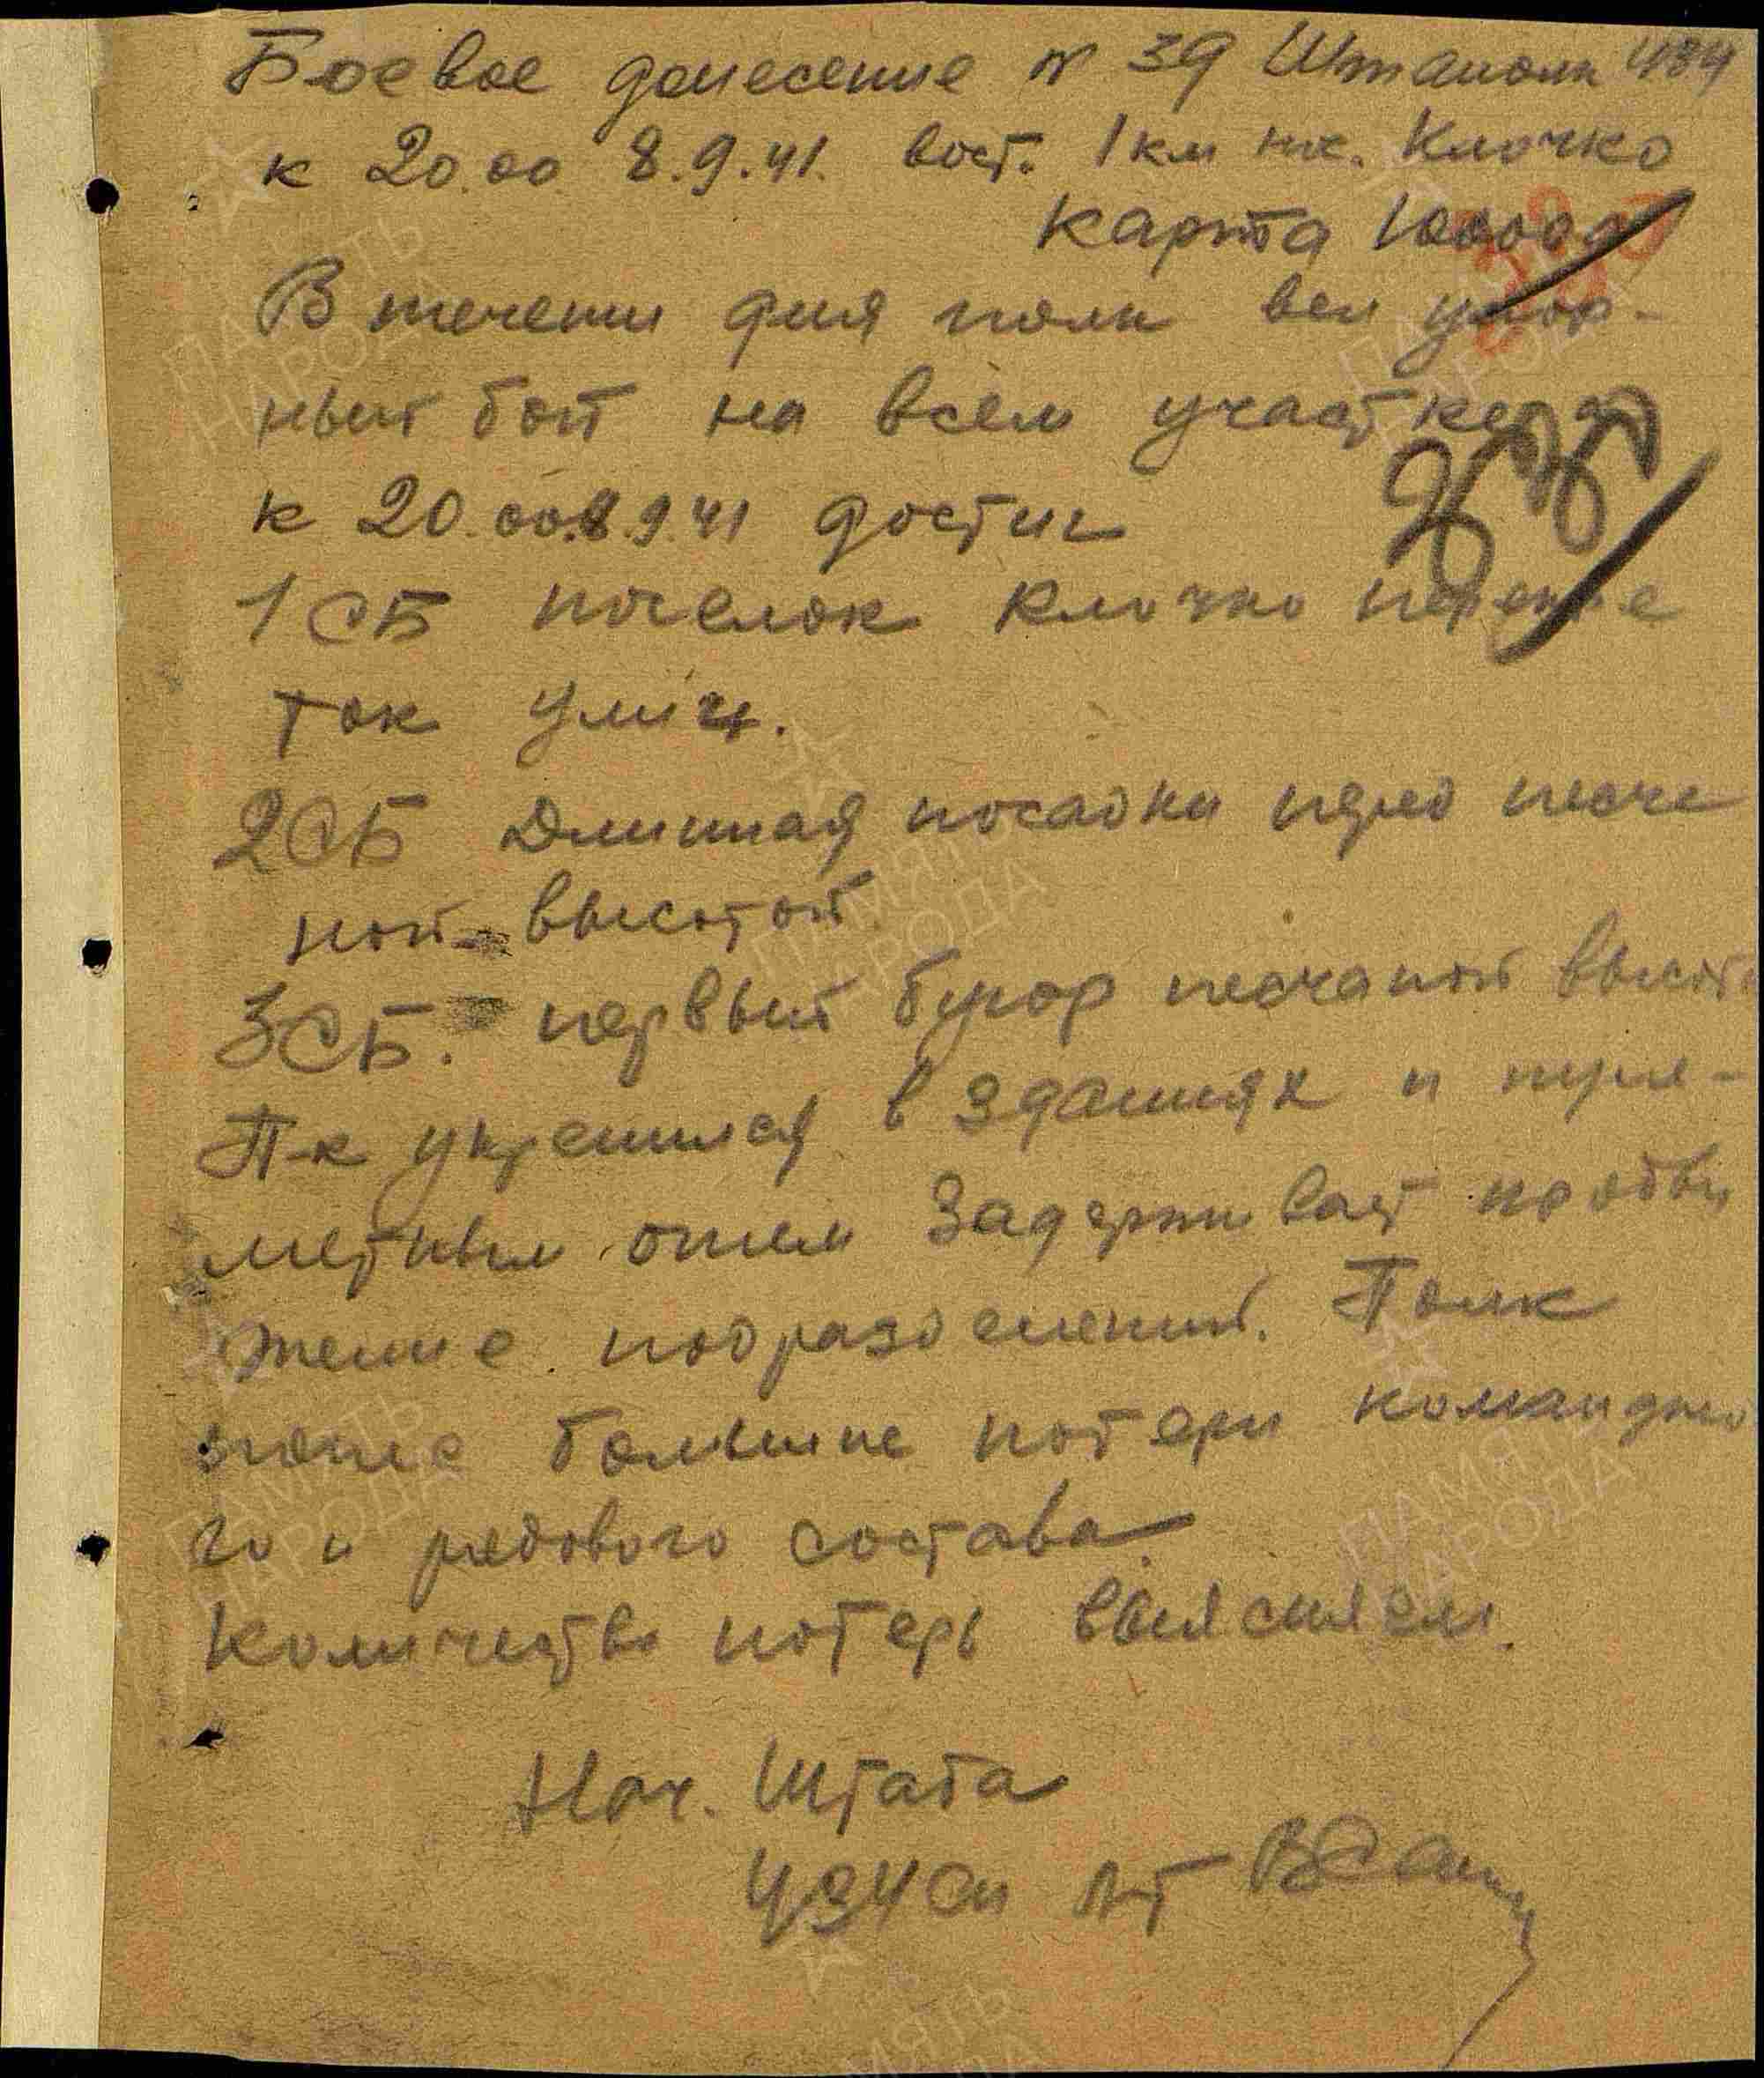 Боевое донесение № 39 Штаполк 484
к 20.00 8.9.41. вост. 1 км юж. Клочко
карта 100000
В течении дня полк вел упор-
ный бой на всем участке и
к 20.00 8.9.41 достиг
1 СБ поселок Клочко перекре
ток улиц.
2 СБ Длинная посадки пред песче
ной высотой
3 СБ. первый бугор песчаной высоты
Пр-к укрепился в зданиях и пуле-
метным огнем задерживает продви
жение подразделений. Полк
понес большие потери командно
го и рядового состава.
Количество потерь выясняем.
Нач. Штаба
484 сп л-т